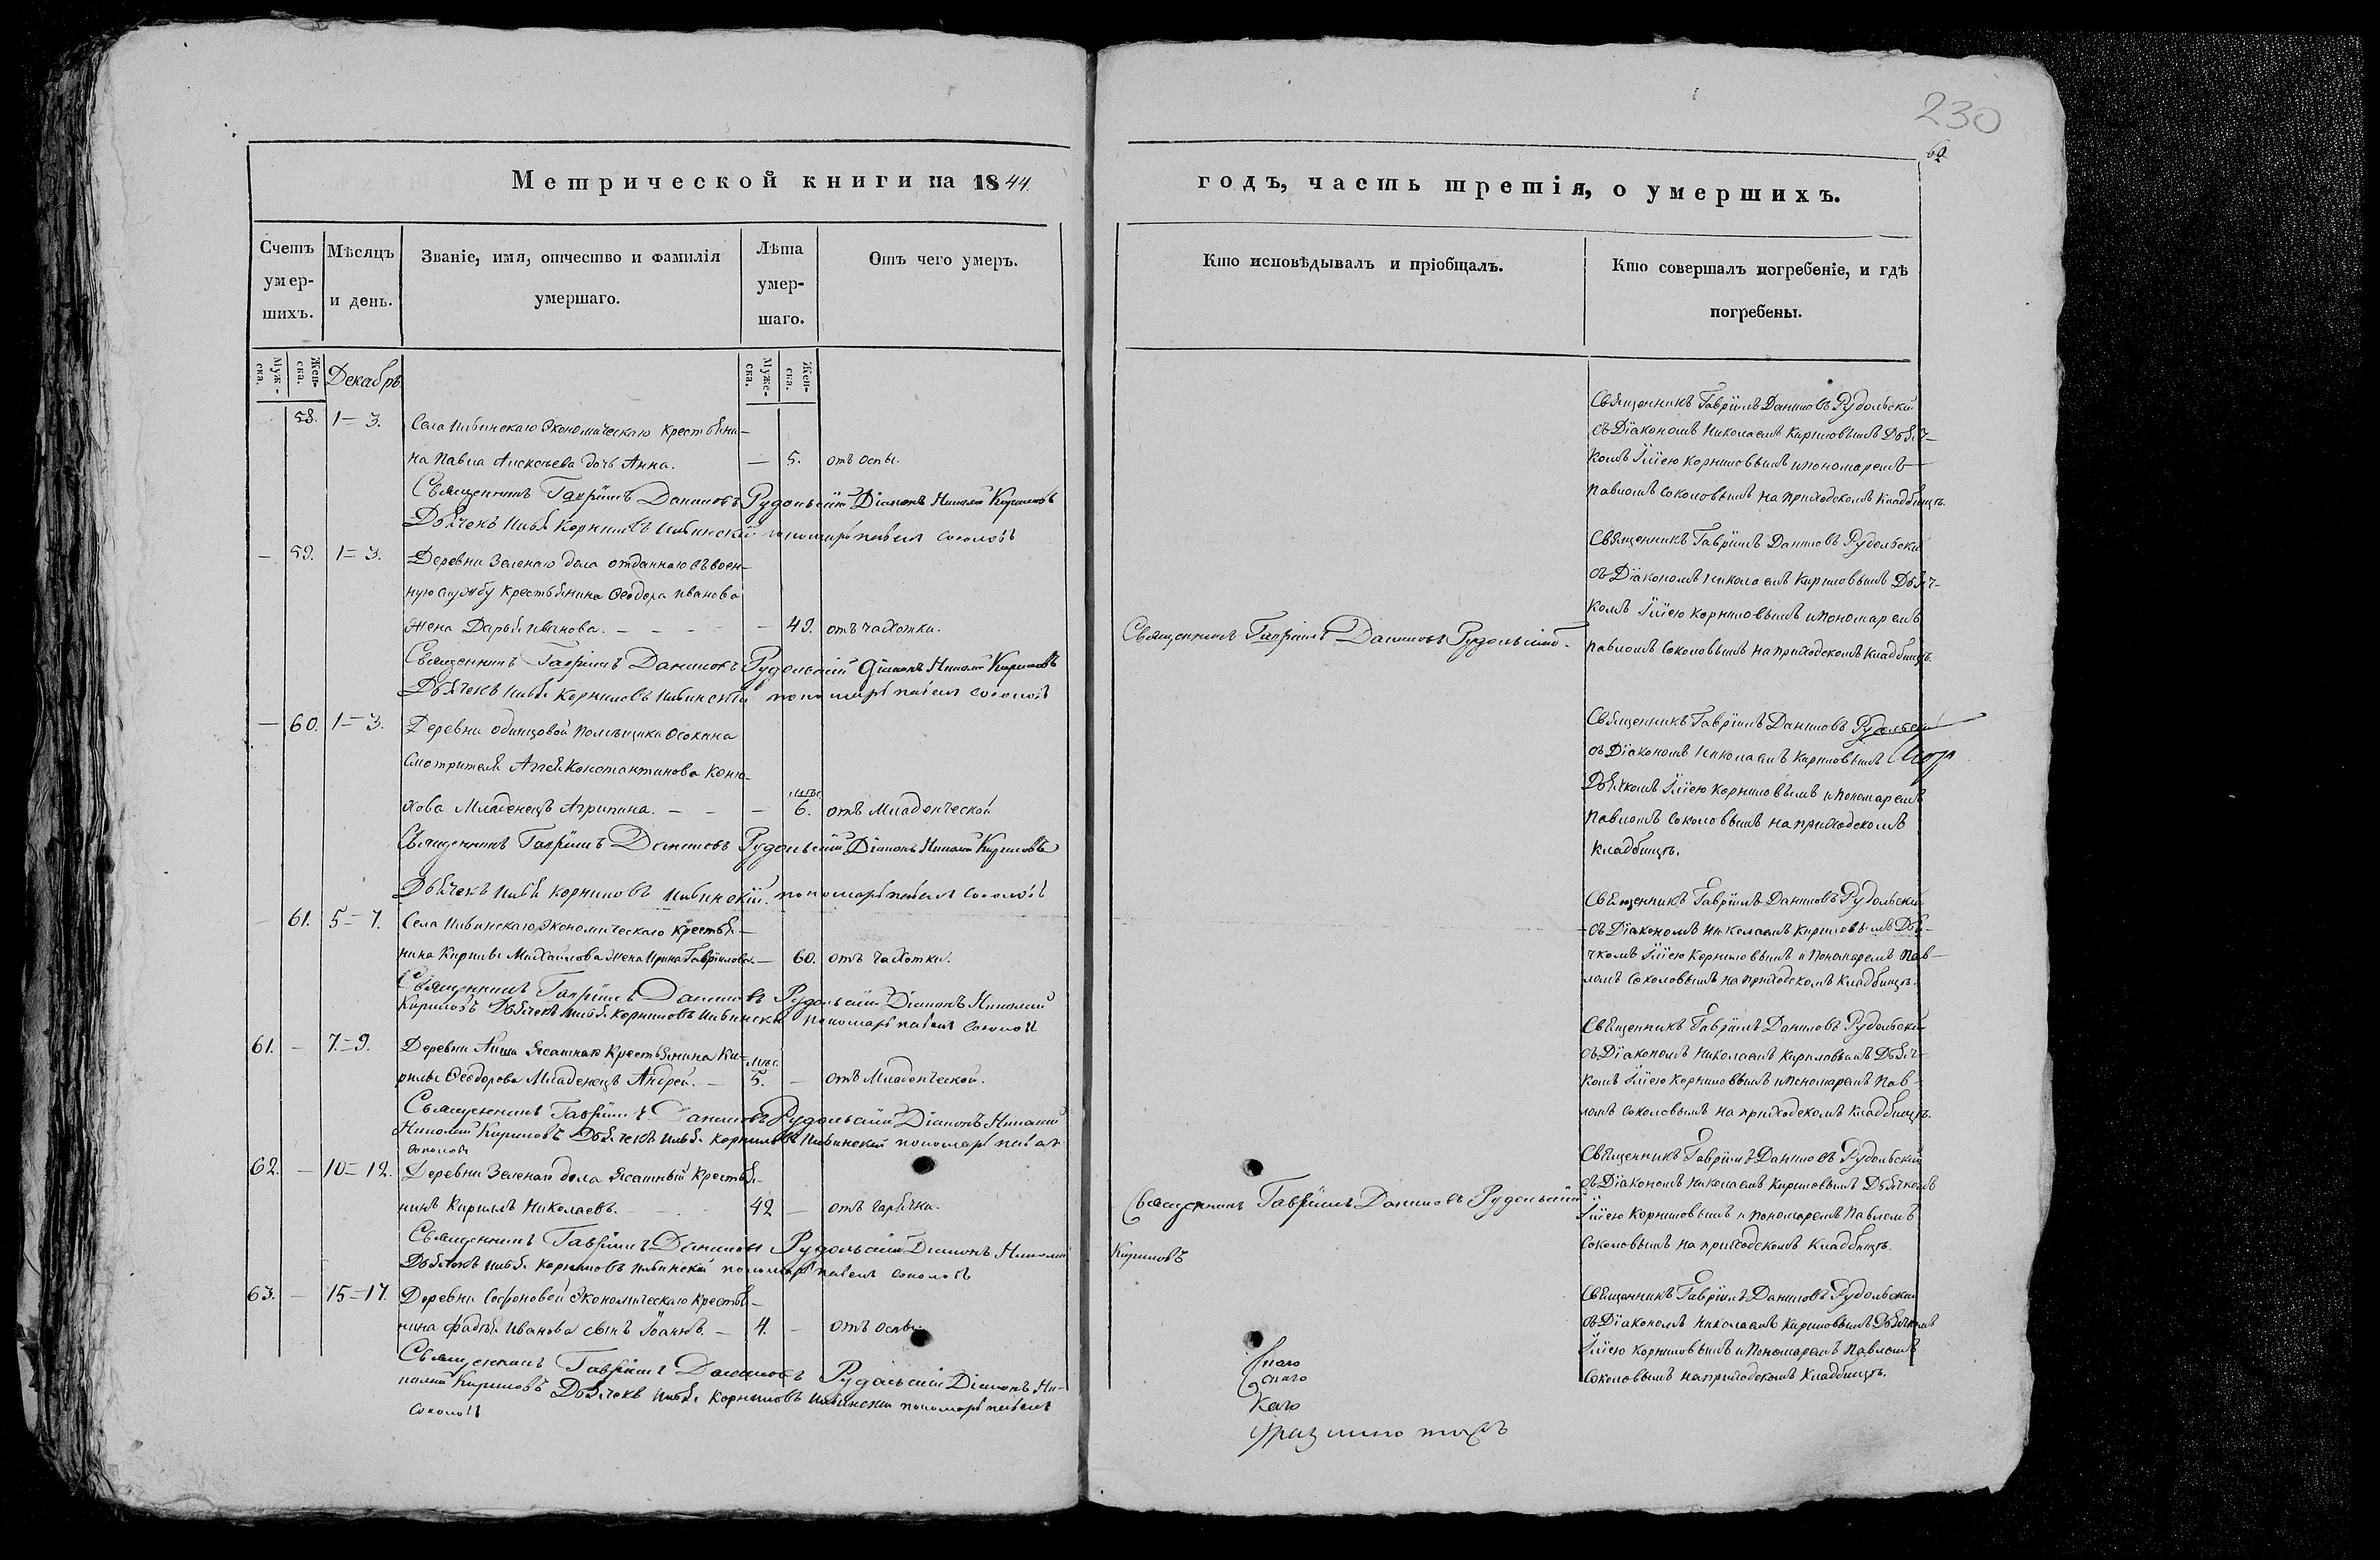 230
69
Метрической книги на 1844.
годъ, часть третія, о умершихъ.
Счетъ умер-шихъ.
Мѣсяцъ и день.
Званіе, имя, отчество и фамилія умершаго.
Лѣта умер-шаго.
Отъ чего умеръ.
Кто исповѣдывалъ и пріобщалъ.
Кто совершалъ погребеніе, и гдѣ погребены.
Муж-ска.
Жен-ска.
Декабрь
Муже-ска.
Жен-ска.
58. 1=3. Села Ивинскаго Экономическаго крестьяни-
на Павла Алексѣева дочь Анна. — 5. отъ оспы.
Священникъ Гавріилъ Даниловъ Рудольскій Діаконъ Николай Кириловъ
Дьячекъ Илья Корниловъ Ивинскій пономарь павелъ соколовъ
Священникъ Гавріилъ Даниловъ Рудольскій
съ Діакономъ Николаемъ Кириловымъ Дьяч-
комъ Ильею Корниловымъ и пономаремъ
павломъ соколовымъ на приходскомъ кладбищѣ.
— 59. 1=3. Деревни Зеленаго дола отданнаго въ воен-
ную службу крестьянина Ѳеодора Иванова
жена Дарья Иванова. — 49. отъ чахотки.
Священникъ Гавріилъ Даниловъ Рудольскій Діаконъ Николай Кириловъ
Дьячекъ Илья Корниловъ Ивинскій пономарь павелъ соколовъ
Священникъ Гавріилъ Даниловъ Рудольскій.
Священникъ Гавріилъ Даниловъ Рудольскій
съ Діакономъ Николаемъ Кириловымъ Дьяч-
комъ Ильею Корниловымъ и Пономаремъ
павломъ соколовымъ на приходскомъ кладбищѣ.
— 60. 1=3. Деревни одинцовой помѣщика Осокина
смотрителя Аггея Константинова Коню-
хова Младенецъ Агрипина. — 6. отъ Младенческой
Священникъ Гавріилъ Даниловъ Рудольскій Діаконъ Николай Кириловъ
Дьячекъ Илья Корниловъ Ивинскій пономарь павелъ соколовъ
Священникъ Гавріилъ Даниловъ Рудольскій
съ Діакономъ Николаемъ Кириловымъ
Дьячкомъ Ильею Корниловымъ и пономаремъ
Павломъ Соколовымъ на приходскомъ
кладбищѣ.
— 61. 5=7. Села Ивинскаго Экономическаго крестья-
нина Кирилы Михайлова жена Ирина Гаврилова. — 60. отъ чахотки.
Священникъ Гавріилъ Даниловъ Рудольскій Діаконъ Николай
Кириловъ Дьячекъ Илья Корниловъ Ивинскій пономарь павелъ соколовъ
Священникъ Гавріилъ Даниловъ Рудольскій
съ Діакономъ Николаемъ Кириловымъ Дья-
чкомъ Ильею Корниловымъ и Пономаремъ Пав-
ломъ соколовымъ на приходскомъ кладбищѣ.
61. — 7=9. Деревни Ясашнаго крестьянина Ки-
рилы Ѳеодорова Младенецъ Андрей. — 5. — отъ Младенческой.
Священникъ Гавріилъ Даниловъ Рудольскій Діаконъ Николай
Николай Кириловъ Дьячекъ Илья Корниловъ Ивинскій пономарь павелъ
соколовъ
Священникъ Гавріилъ Даниловъ Рудольскій
съ Діакономъ Николаемъ Кириловымъ Дьяч-
комъ Ильею Корниловымъ и Пономаремъ Пав-
ломъ соколовымъ на приходскомъ кладбищѣ.
62. — 10=12. Деревни Зеленаго дола Ясашный крестья-
нинъ Кирилъ Николаевъ. — 42 — отъ горячки.
Священникъ Гавріилъ Даниловъ Рудольскій Діаконъ Николай Кириловъ
Дьячекъ Илья Корниловъ Ивинскій пономарь павелъ соколовъ
Священникъ Гавріилъ Даниловъ Рудольскій
Священникъ Гавріилъ Даниловъ Рудольскій
съ Діакономъ Николаемъ Кириловымъ Дьячкомъ
Ильею Корниловымъ и пономаремъ Павломъ
Соколовымъ на приходскомъ кладбищѣ.
63. — 15=17. Деревни Софоновой Экономическаго крестья-
нина Фадѣя Иванова сынъ Іоаннъ. — 4. — отъ оспы.
Священникъ Гавріилъ Даниловъ Рудольскій Діаконъ Ни-
колай Кириловъ Дьячекъ Илья Корниловъ Ивинскій пономарь павелъ
соколовъ
Священникъ Гавріилъ Даниловъ Рудольскій
съ Діакономъ Николаемъ Кириловымъ Дьячкомъ
Ильею Корниловымъ и Пономаремъ Павломъ
Соколовымъ на приходскомъ кладбищѣ.